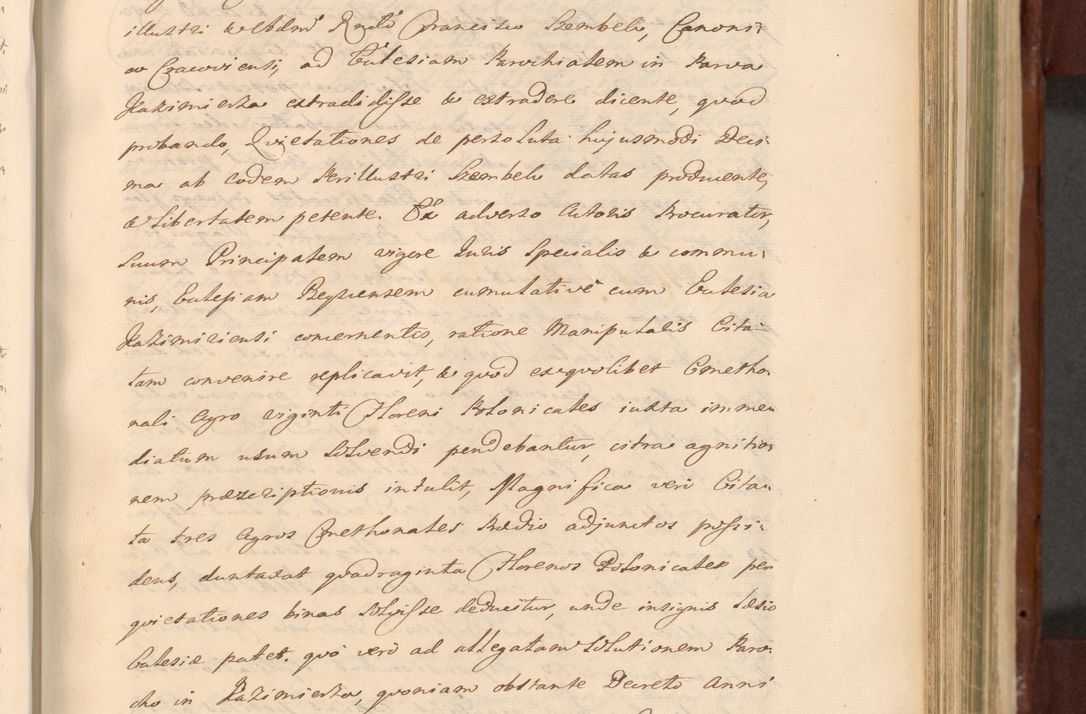 illustri & Adm Rndo Francisco Szembek, Canoni-
co Cracoviensi, ad Ecclesiam Parochialem in Parva
Kazimierza extradidisse & extradere dicente, quod
probando, Quietationes de persoluta hujusmodi Deci-
ma ab eodem Perillustri Szembek datas producente,
& libertatem petente. Ex adverso Actoris Procurator,
Suum Principalem vigore Juris Specialis & commu-
nis, Ecclesiam Beysciensem cumulative cum Ecclesia
Kazimiriensi concernentis, ratione Manipularis Cita-
tam convenire replicavit, & quod ex quolibet Cmetho-
nali Agro viginti Floreni Polonicales iuxta imme-
diatum usum solvendi pendebantur, citra agnitio-
nem præscriptionis intulit, Magnifica vero Cita-
ta tres Agros Cmethonales Prædio adjunctos possi-
dens, duntaxat quadraginta Florenos Polonicales per
quietationes binas solvisse deducitur, unde insignis læsio
Ecclesiæ patet. quo vero ad allegatam solutionem Paro-
cho in Kazimierza, quoniam obstante Decreto Anni